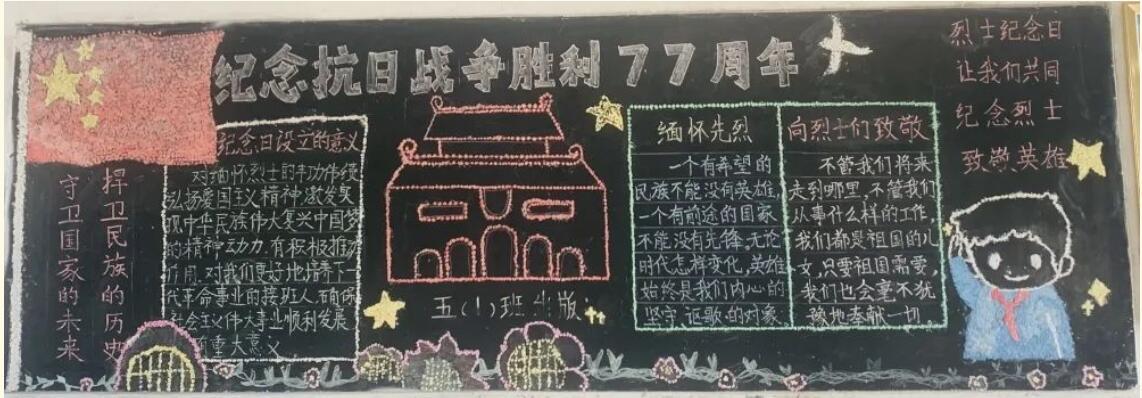 纪念抗日战争胜利77周年
烈士纪念日
让我们共同
纪念烈士
致敬英雄
捍卫民族的历史
守卫国家的未来
纪念日设立的意义
对缅怀烈士的丰功伟绩
弘扬爱国主义精神激发实
现中华民族伟大复兴中国梦
的精神动力,有积极推动
作用.对我们更好地培养下一
代革命事业的接班人,确保
社会主义伟大事业顺利发展
重大意义
五(1)班出版
缅怀先烈
一个有希望的
民族不能没有英雄,
一个有前途的国家
不能没有先锋,无论
时代怎样变化,英雄
始终是我们内心的
坚守,讴歌的对象
向烈士们致敬
不管我们将来
走到哪里,不管我们
从事什么样的工作,
我们都是祖国的儿
女,只要祖国需要,
我们也会毫不犹
豫地奉献一切